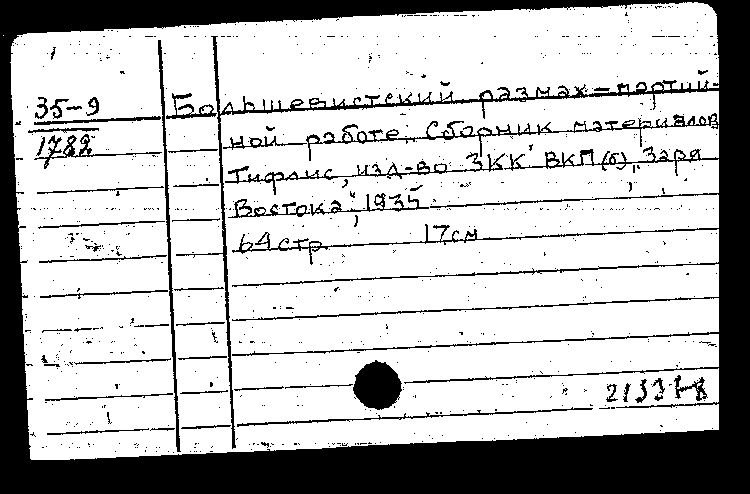 35-9
1782
Большевистский размах — партий-
ной работе. Сборник материалов
Тифлис, изд-во ЗКК ВКП(б) "Заря
Востока", 1935
64 стр. 17 см